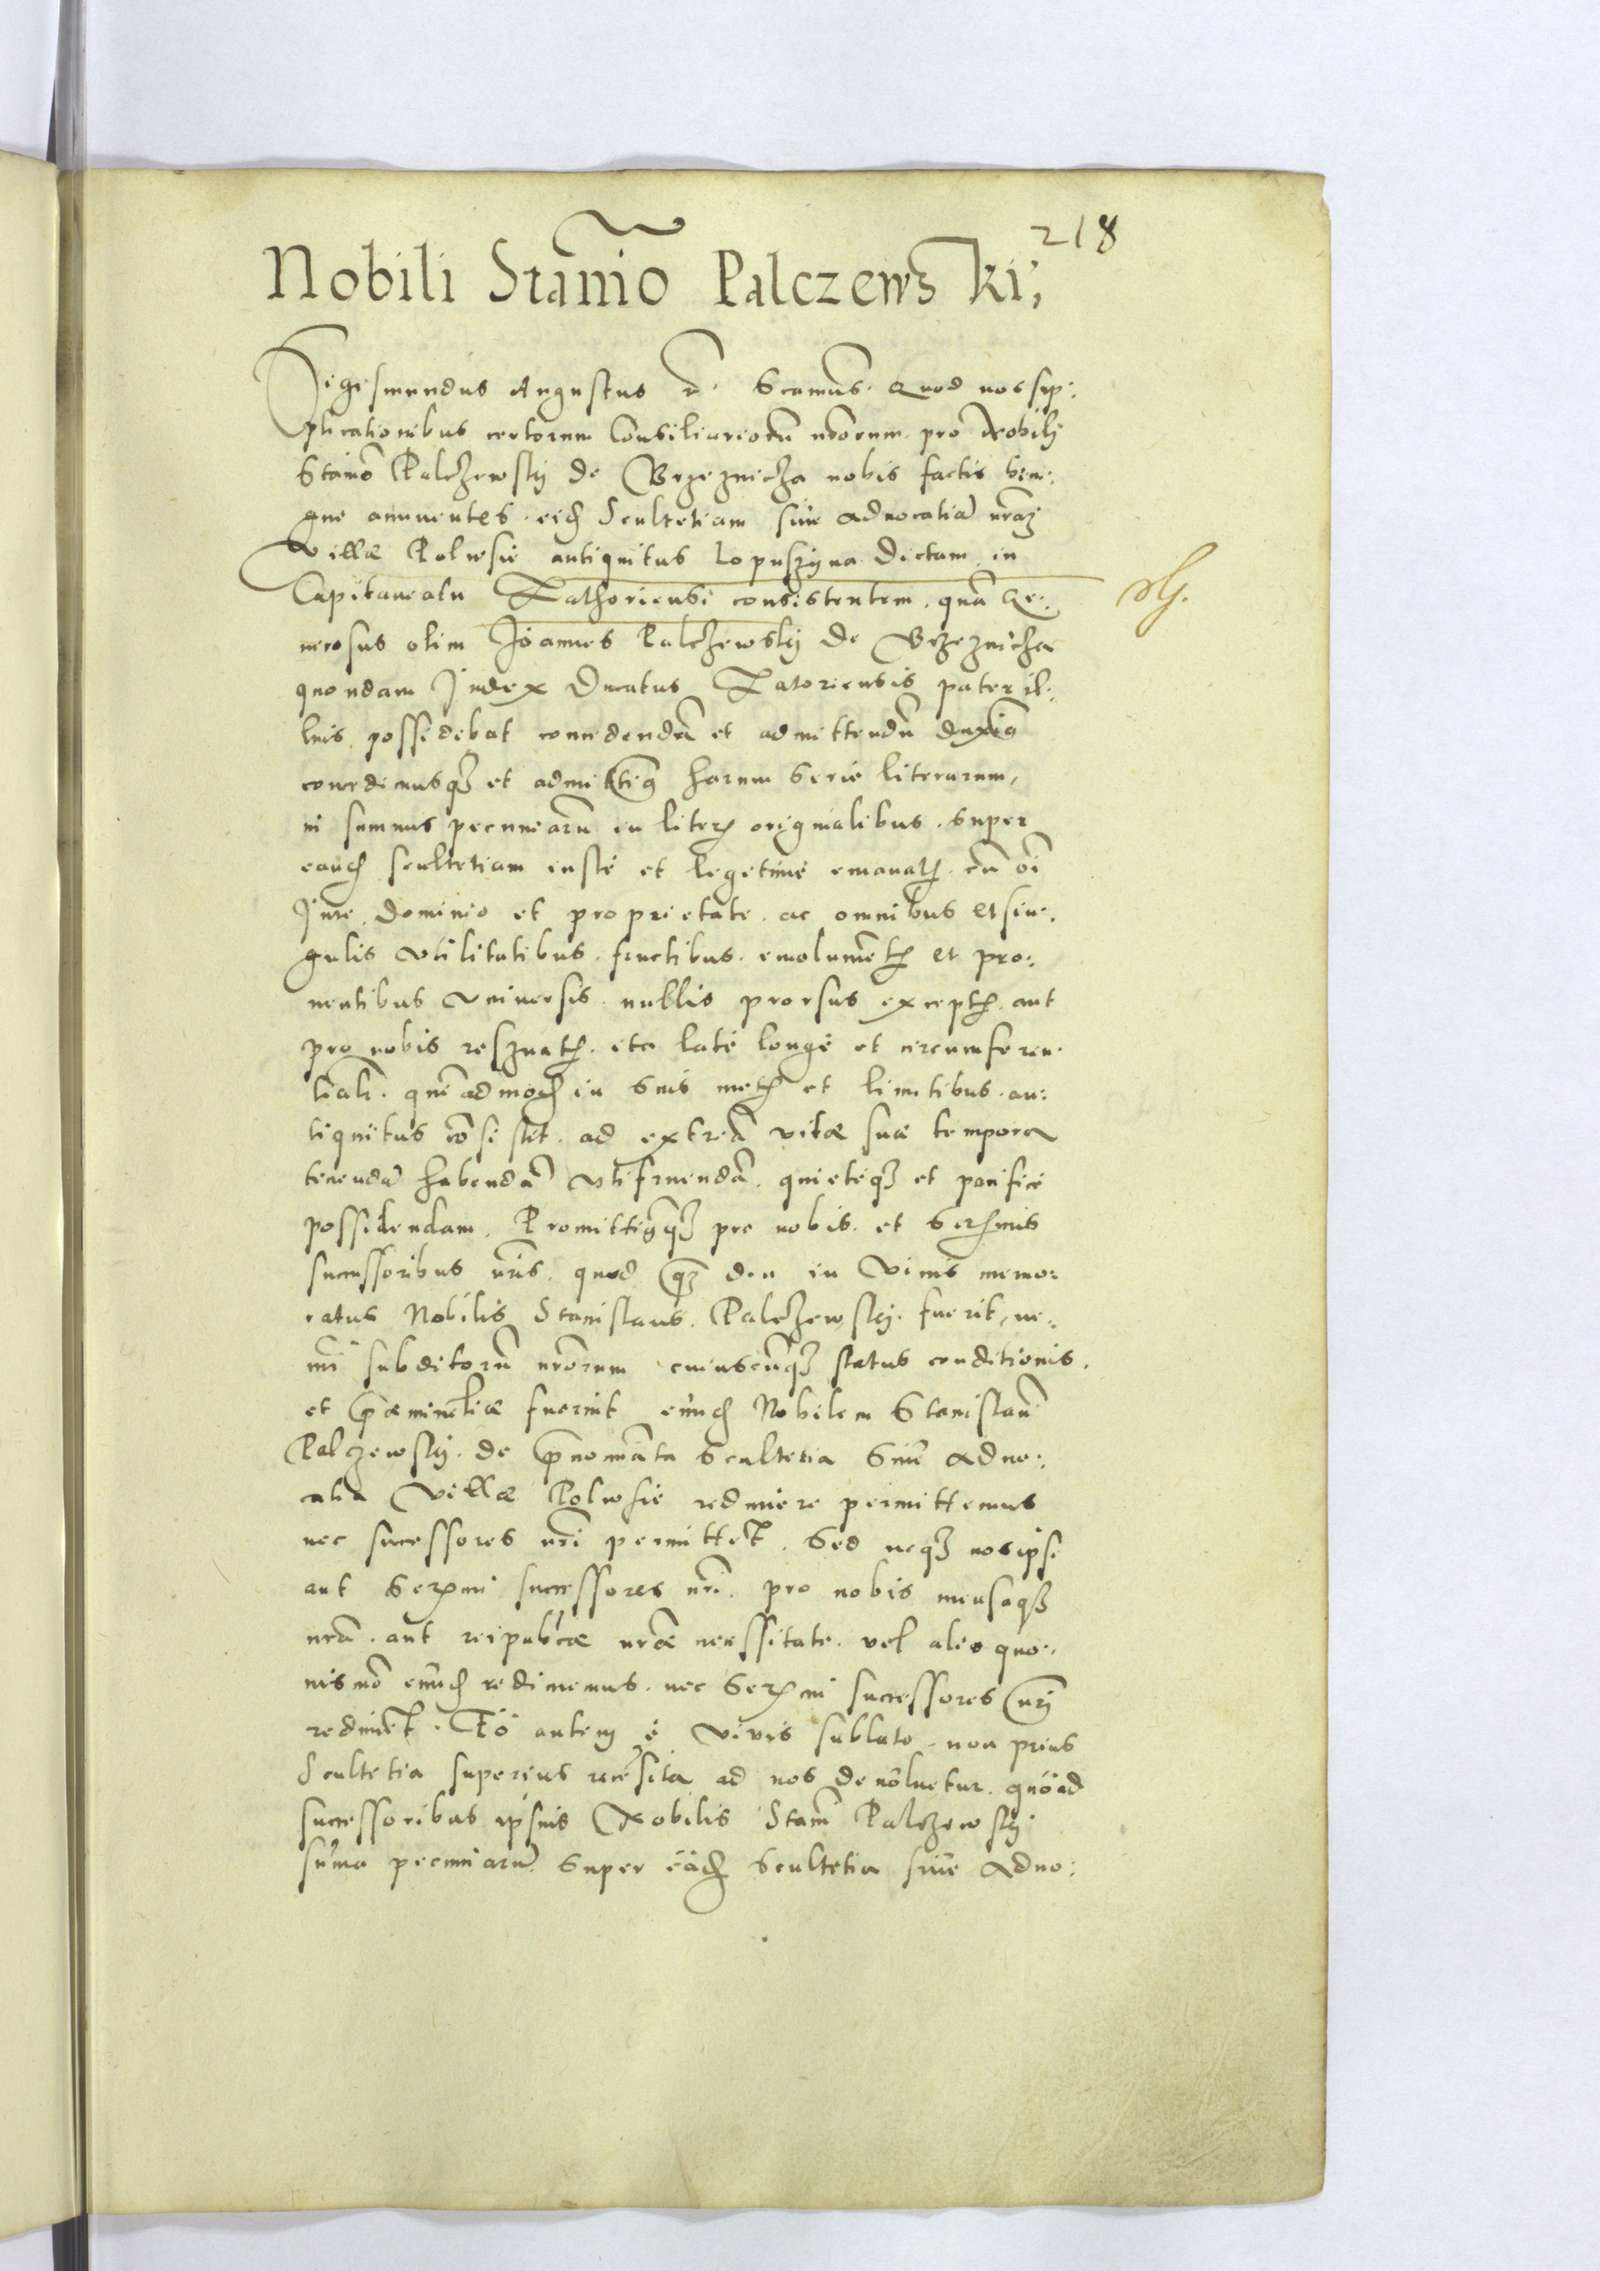 218
Nobili Stanio Palczewski,
Sigismundus Augustus r. Scamus. Quod nos sup:
plicationibus certorum Consiliariorũ nrorum pro Nobilj
Stanio Palczewskij de Brzeznicza nobis factis beni:
gne annuentes eid Scultetiam sive advocatiã nram
Villæ Polwsie antiquitus Lopuszyna dictam in
Capitaneatu Zathoriensi consistentem, quã Ge:
nerosus olim Joannes Palczewskij de Brzeznicza
quondam Judex Ducatus Zatoriensis pater il:
lius possidebat concedendã et admittendũ duximq
concedimusqz et admittimq harum serie literarum,
in summis pecuniarũ in liter originalibus super
eand scultetiam iuste et legitimè emanat cũ oi
Jure dominio et proprietate ac omnibus et sin:
gulis vtilitatibus fructibus emolumet et pro:
uentibus vniuersis nullis prorsus except aut
pro nobis reseruat ita latè longè et circumferen
tialr quẽadmod in suis met et limitibus an:
tiquitus cõsistit ad extrema vitæ suæ tempora
tenendã habendã vtifruendã quieteqz et pacificè
possidendam. Promittimqqz pro nobis et Sermis
successoribus nris quod qz diu in viuis memo:
ratus Nobilis Stanislaus Palczewskij fuerit, ne:
mi subditorũ nrorum cuiuscũqz status conditionis
et præminẽtiæ fuerint eund Nobilem Stanislaũ
Palczewskij de prænomiata Scultetia siue aduo:
catia Villæ Polwsie redimere permittemus
nec successores nri permittẽt. Sed neqz nos ipsi
aut Sermi successores nri pro nobis mensaqz
nrã aut reipubcæ nræ necessitate vel alio quo:
uismõ eund redimemus nec Sermi successores nrj
redimẽt. Eo autem è viuis sublato non prius
Scultetia superius recensita ad nos deuoluetur quoad
successoribus ipsius Nobilis Stani Palczewskij
suma pecuniarũ super ead Scultetia siue aduo: